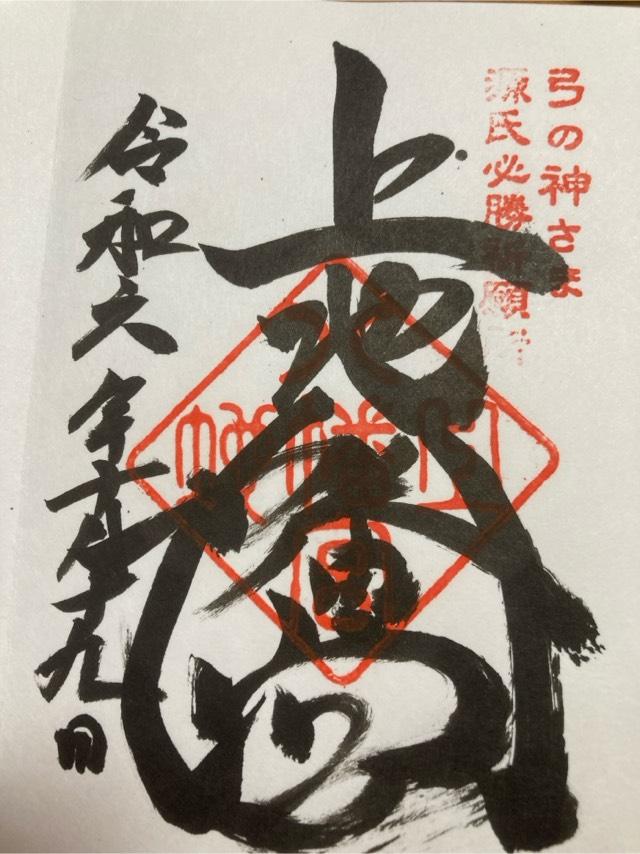 弓の神さま
源氏必勝祈願所
上地八幡宮
令和六年十月十九日